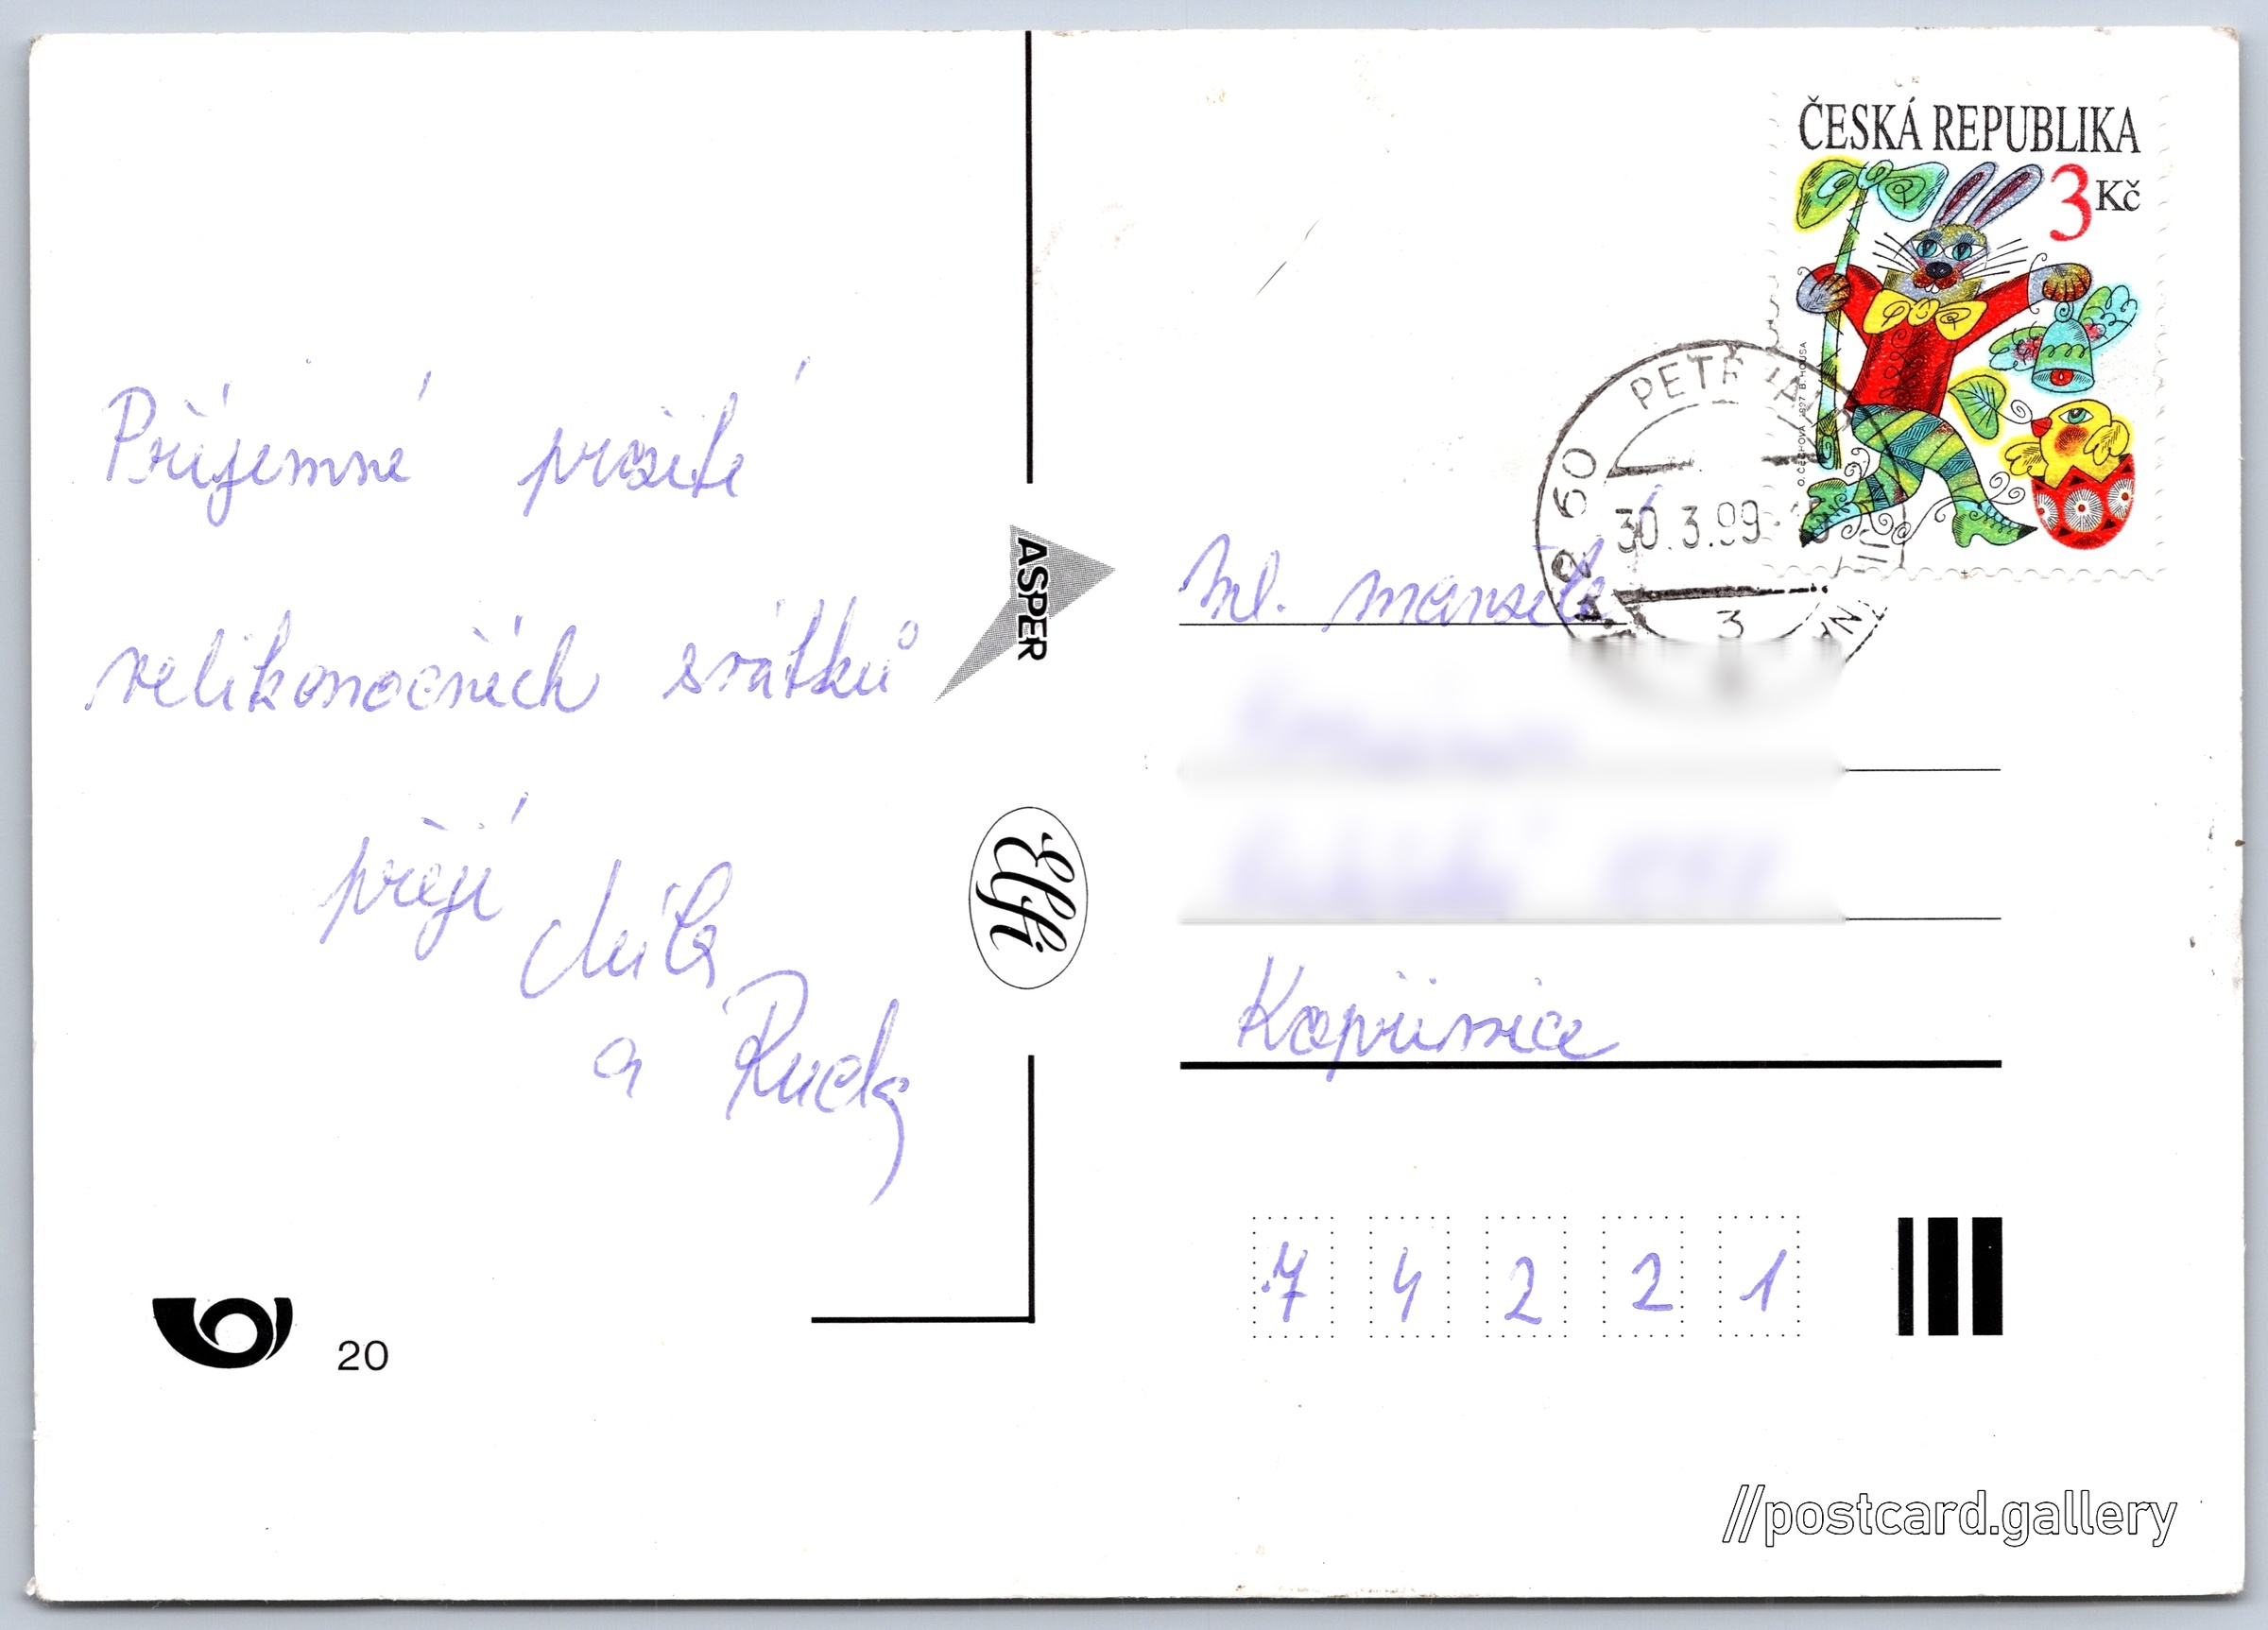 Příjemné prožití
velikonočních svátků
přejí Míla
a Ruda
20
ASPER
Elfi
ČESKÁ REPUBLIKA
3 Kč
O. ČECHOVÁ 1997 B. HOUSA
30.3.99
3
Ml. manželé
Kopřivnice
7 4 2 2 1
//postcard.gallery